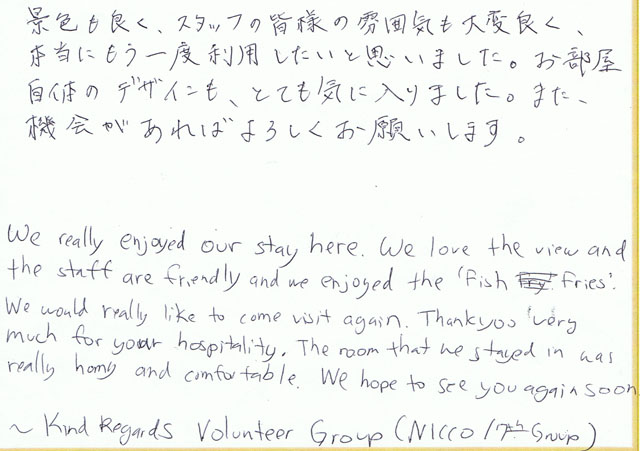 景色も良く、スタッフの皆様の雰囲気も大変良く、
本当にもう一度利用したいと思いました。お部屋
自体のデザインも、とても気に入りました。また、
機会があればよろしくお願いします。
We really enjoyed our stay here. We love the view and
the staff are friendly and we enjoyed the 'fish fries'.
We would really like to come visit again. Thankyou very
much for your hospitality. The room that we stayed in was
really homy and comfortable. We hope to see you again soon
~ Kind Regards Volunteer Group (NICCO / 17th Group)